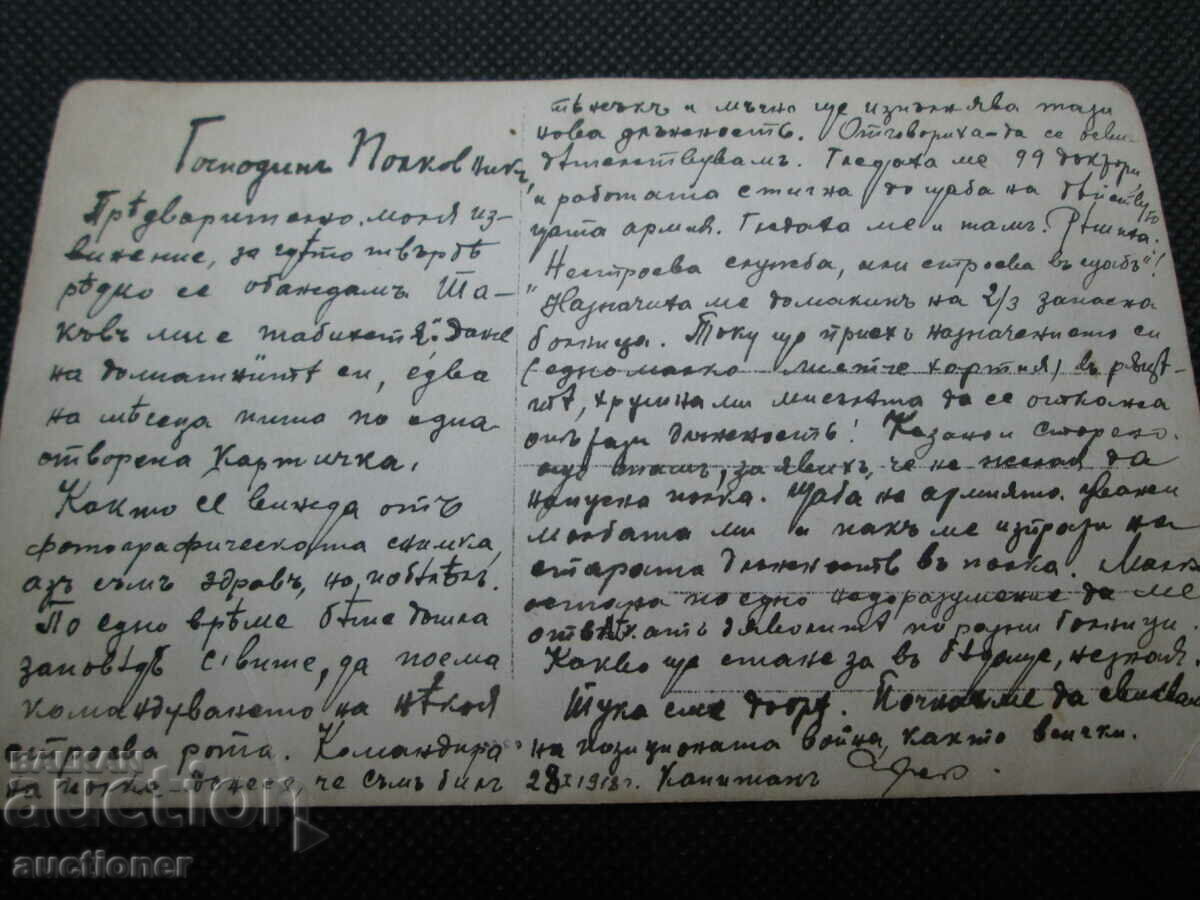 Господинъ Полковникъ,
Прѣдварително моля из-
винение, за гдѣто твърдѣ
рѣдко се обаждамъ. Та-
къвъ ми е табиетя. Даже
на домашнитѣ си, едва
на мѣсеца пиша по една
отворена картичка.
Както се вижда отъ
фотографическата снимка,
азъ съмъ здравъ, но побѣлѣлъ.
По едно врѣме бѣше дошла
заповѣдь свише, да поема
командуването на нѣкоя
строева рота. Командира
на полка донесе, че съмъ билъ
тѣжъкъ и мъчно ще изпълнява тази
нова длъжность. Отговориха да се осви-
дѣтелствувамъ. Гледаха ме 99 доктори
и работата стигна до щаба на дѣйству-
ющата армия. Гледаха ме и тамъ. Рѣшиха:
"Нестроева служба, или строева въ щабъ"!
Назначиха ме домакинъ на 2/3 запасна
болница. Току що приехъ назначението си
(едно малко листче хартия) въ рѫцѣ-
тѣ, хрумна ми мисъльта да се откажа
отъ тази длъжность! Казано и сторено.
още тамъ, заявихъ, че не желая да
напусна полка. Щаба на армията уважи
молбата ми и пакъ ме изпрати на
старата длъжность въ полка. Малко
остана по едно недоразумение да ме
отвлѣкатъ дяволитѣ по разни болници.
Какво ще стане за въ бѫдеще, незная.
Тука сме добрѣ. Почнахме да свикваме
на позиционата война, както всички.
28 1918г. Капитанъ
BALKAN
auction
auctioner